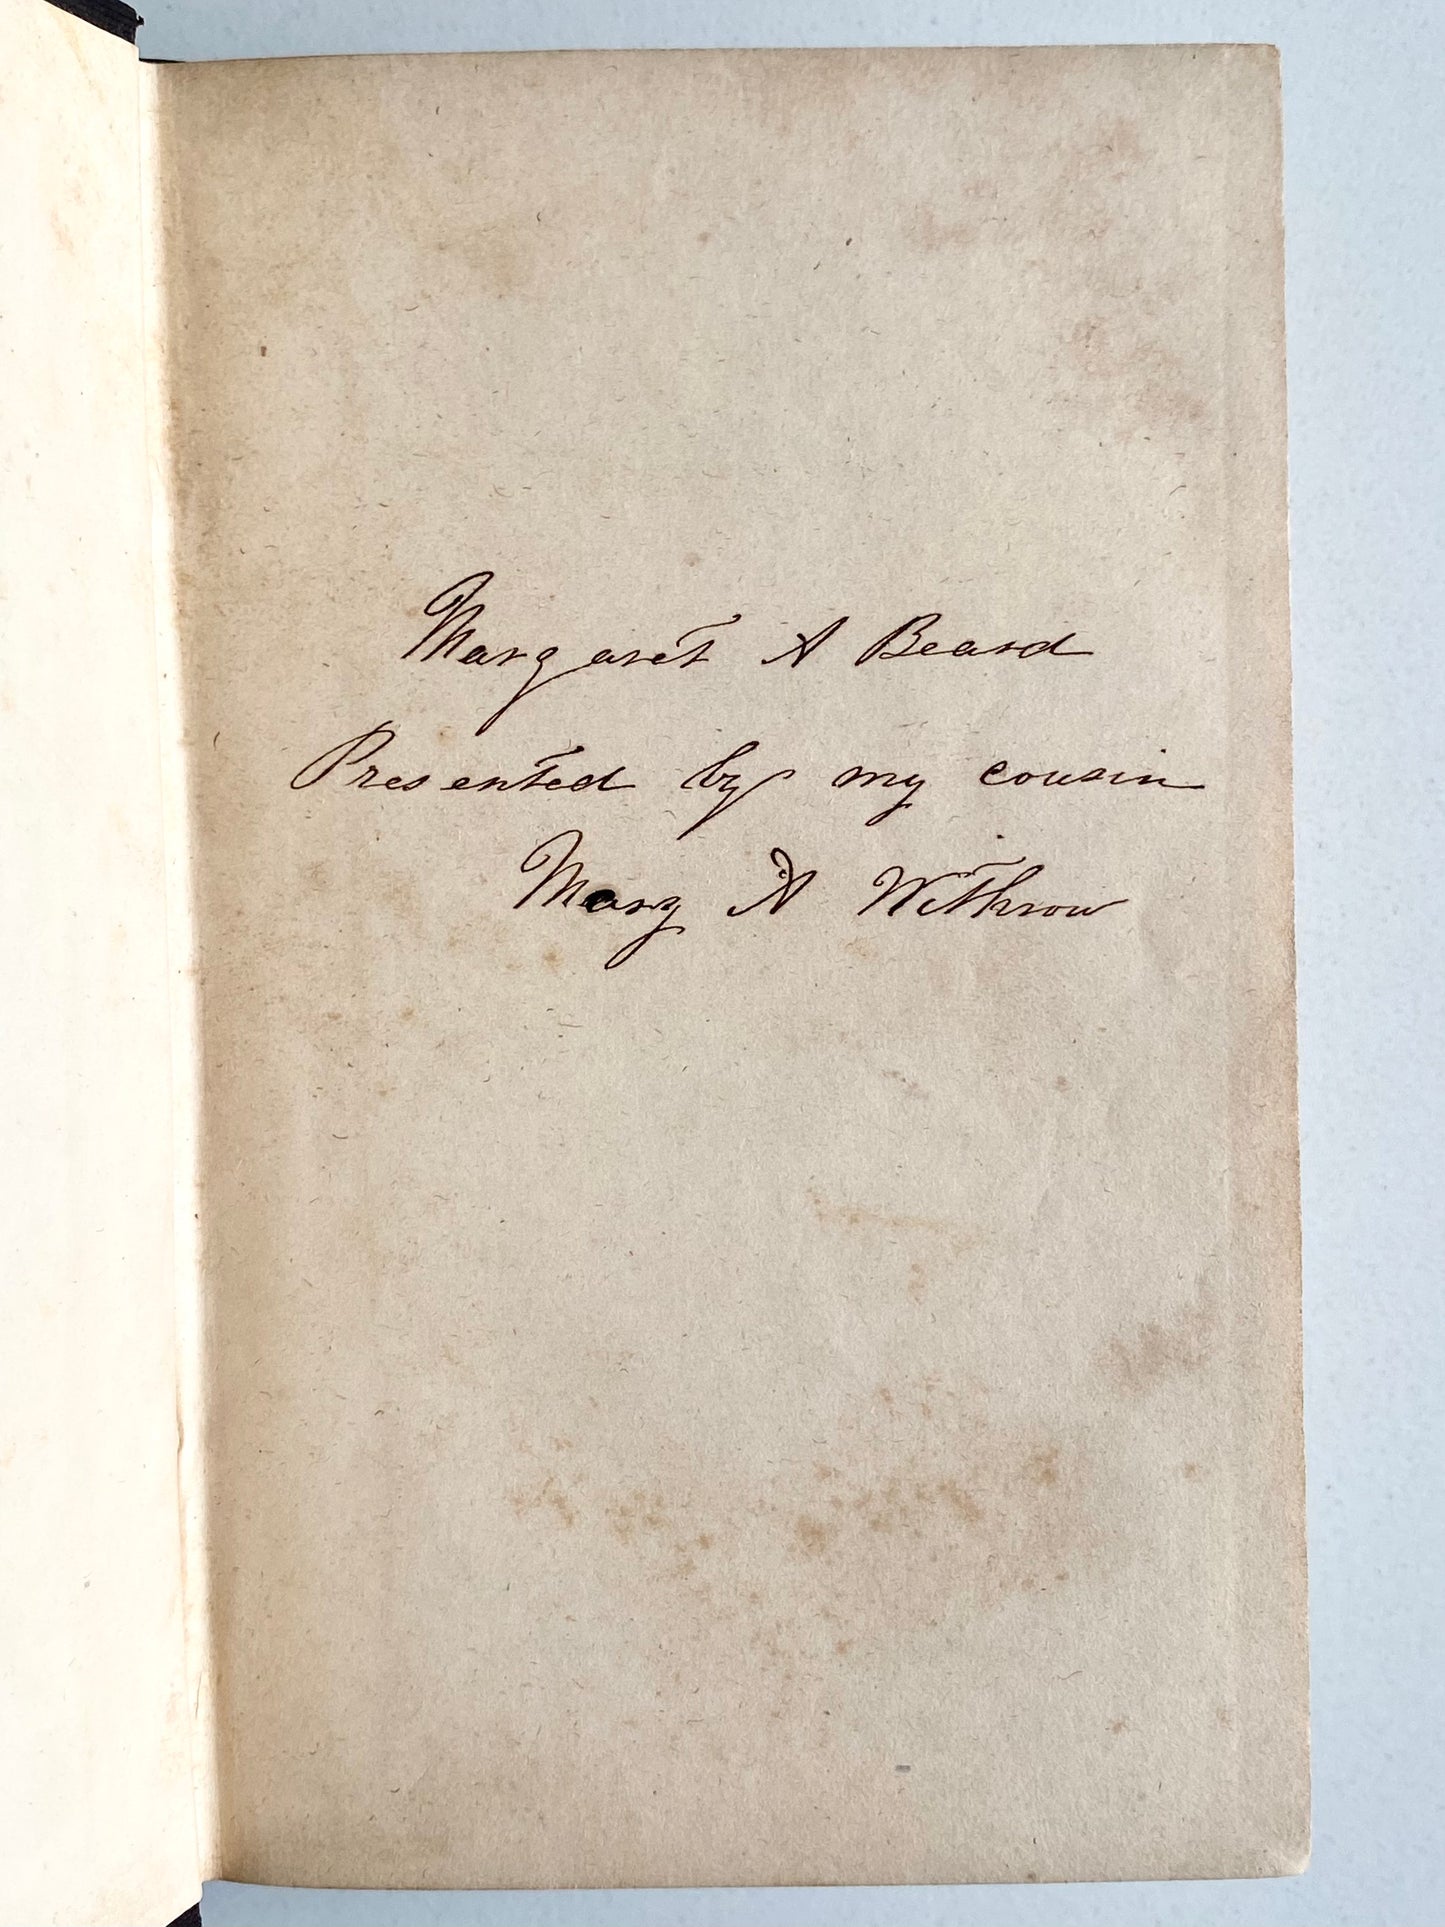 Margaret A Beard
Presented by my cousin
Mary A Withrow